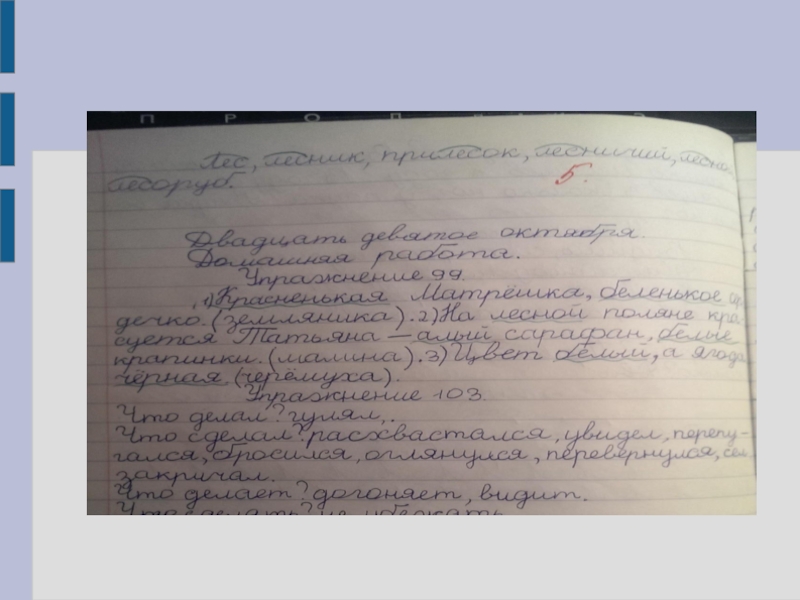 Лес, лесник, прилесок, лесничий,
лесоруб.
5.
Двадцать девятое октября.
Домашняя работа.
Упражнение 99.
1) Красненькая Матрёшка, беленькое
дечко. (земляника). 2) На лесной поляне кра-
суется Татьяна — алый сарафан, белые
крапинки. (малина). 3) Цвет белый, а ягода
чёрная. (черёмуха).
Упражнение 103
Что делал? гулял, .
Что сделал? расхвастался, увидел, перепу-
гался, бросился, оглянулся, перевернулся, сел
закричал.
Что делает? догоняет, видит.